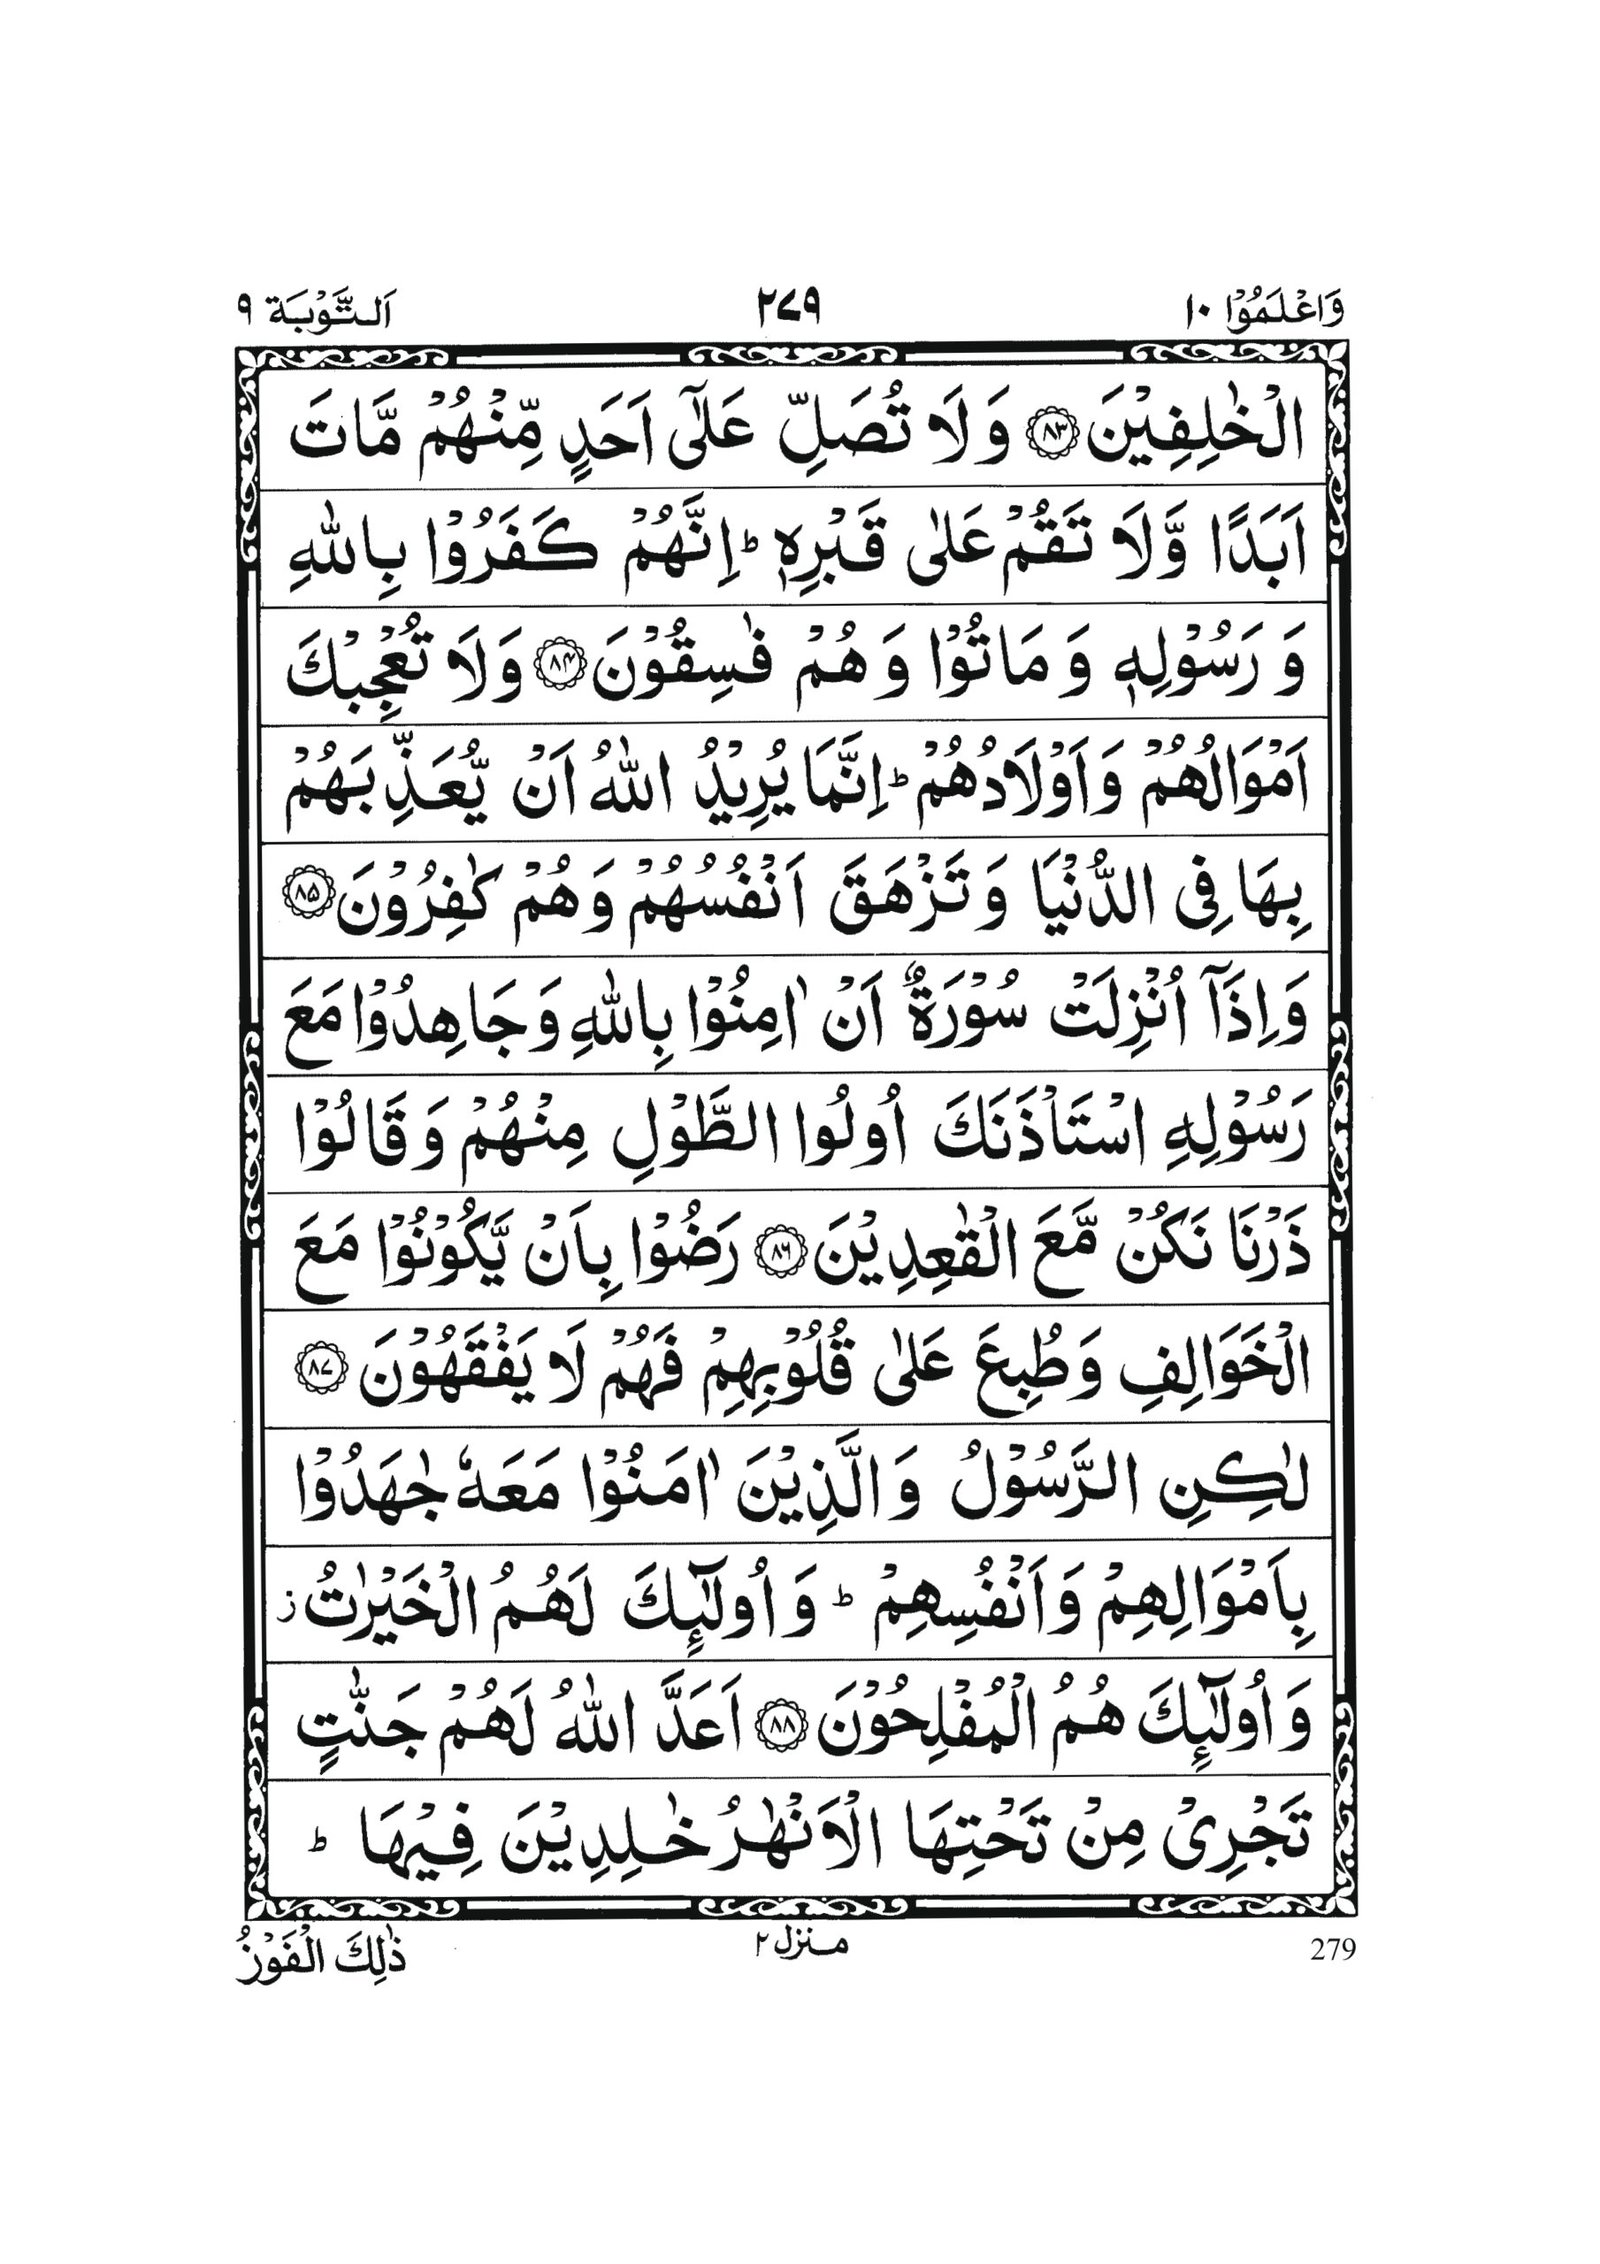 وَاعْلَمُوْۤا ۱۰
۲۷۹
اَلتَّوْبَة ۹
الْخٰلِفِيْنَ ﴿۸۳﴾ وَ لَا تُصَلِّ عَلٰۤى اَحَدٍ مِّنْهُمْ مَّاتَ
اَبَدًا وَّلَا تَقُمْ عَلٰى قَبْرِهٖ ؕ اِنَّهُمْ كَفَرُوْا بِاللّٰهِ
وَ رَسُوْلِهٖ وَ مَاتُوْا وَ هُمْ فٰسِقُوْنَ ﴿۸۴﴾ وَلَا تُعْجِبْكَ
اَمْوَالُهُمْ وَ اَوْلَادُهُمْ ؕ اِنَّمَا يُرِيْدُ اللّٰهُ اَنْ يُّعَذِّبَهُمْ
بِهَا فِى الدُّنْيَا وَ تَزْهَقَ اَنْفُسُهُمْ وَ هُمْ كٰفِرُوْنَ ﴿۸۵﴾
وَ اِذَاۤ اُنْزِلَتْ سُوْرَةٌ اَنْ اٰمِنُوْا بِاللّٰهِ وَ جَاهِدُوْا مَعَ
رَسُوْلِهِ اسْتَاْذَنَكَ اُولُوا الطَّوْلِ مِنْهُمْ وَ قَالُوْا
ذَرْنَا نَكُنْ مَّعَ الْقٰعِدِيْنَ ﴿۸۶﴾ رَضُوْا بِاَنْ يَّكُوْنُوْا مَعَ
الْخَوَالِفِ وَ طُبِعَ عَلٰى قُلُوْبِهِمْ فَهُمْ لَا يَفْقَهُوْنَ ﴿۸۷﴾
لٰكِنِ الرَّسُوْلُ وَ الَّذِيْنَ اٰمَنُوْا مَعَهٗ جٰهَدُوْا
بِاَمْوَالِهِمْ وَ اَنْفُسِهِمْ ؕ وَ اُولٰٓئِكَ لَهُمُ الْخَيْرٰتُ ز
وَ اُولٰٓئِكَ هُمُ الْمُفْلِحُوْنَ ﴿۸۸﴾ اَعَدَّ اللّٰهُ لَهُمْ جَنّٰتٍ
تَجْرِىْ مِنْ تَحْتِهَا الْاَنْهٰرُ خٰلِدِيْنَ فِيْهَا ؕ
279
منزل ۲
ذٰلِكَ الْفَوْزُ